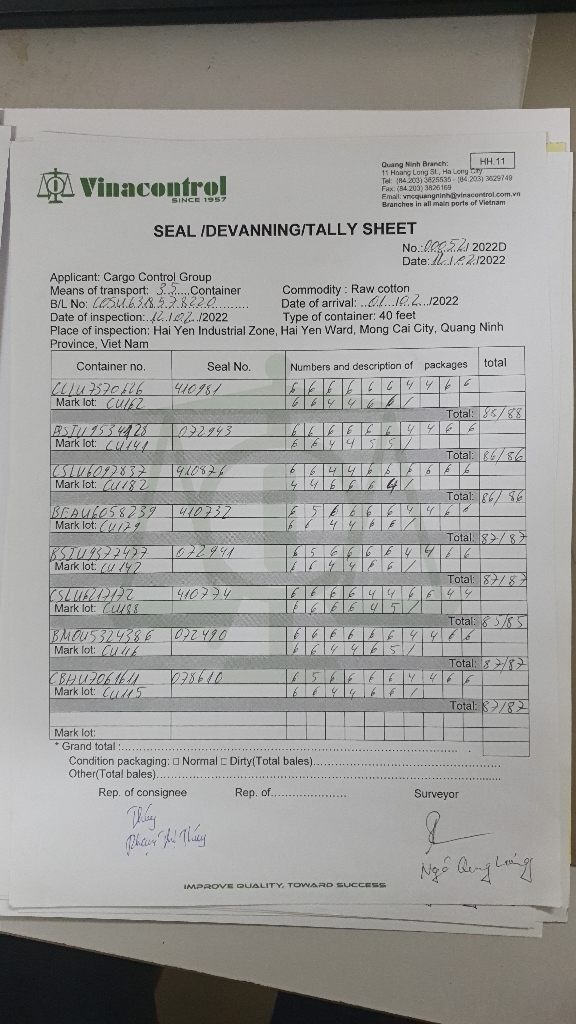 Vinacontrol
SINCE 1957
Quang Ninh Branch:
HH.11
11 Hoang Long St., Ha Long City
Tel: (84.203) 3825535 - (84.203) 3629749
Fax: (84.203) 3826169
Email: vncquangninh@vinacontrol.com.vn
Branches in all main ports of Vietnam
SEAL /DEVANNING/TALLY SHEET
No.:00052/2022D
Date:12/02/2022
Applicant: Cargo Control Group
Means of transport: 35....Container
Commodity : Raw cotton
B/L No: COSU6318578220..........
Date of arrival: ..01../02../2022
Date of inspection:..12/02../2022
Type of container: 40 feet
Place of inspection: Hai Yen Industrial Zone, Hai Yen Ward, Mong Cai City, Quang Ninh
Province, Viet Nam
Container no. Seal No. Numbers and description of packages total
410981 6 6 6 6 6 6 4 4 6 6
Mark lot: CU162 6 6 4 4 6 6 /
Total: 88/88
072943 6 6 6 6 6 6 4 4 6 6
Mark lot: CU141 6 6 4 4 5 5 /
Total: 86/86
CSLU6097837 410876 6 6 4 4 6 6 6 6 6 6
Mark lot: CU182 4 4 6 6 6 4 /
Total: 86/86
BEAU6058239 410732 6 5 6 6 6 6 4 4 6 6
Mark lot: CU129 6 6 4 4 6 6 /
Total: 87/87
072941 6 5 6 6 6 6 4 4 6 6
Mark lot: CU142 6 6 4 4 6 6 /
Total: 87/87
CSLU6217172 410774 6 6 6 6 4 4 6 6 4 4
Mark lot: CU188 6 6 6 6 4 5 /
Total: 85/85
BMOU5324386 072490 6 6 6 6 6 6 4 4 6 6
Mark lot: CU116 6 6 4 4 6 5 /
Total: 87/87
078610 6 5 6 6 6 6 4 4 6 6
Mark lot: CU115 6 6 4 4 6 6 /
Total: 87/87
Mark lot:
* Grand total :
Condition packaging: □ Normal □ Dirty(Total bales)
Other(Total bales)
Rep. of consignee Rep. of..................... Surveyor
Thúy
Phạm Thị Thúy
Ngô Quang
IMPROVE QUALITY, TOWARD SUCCESS